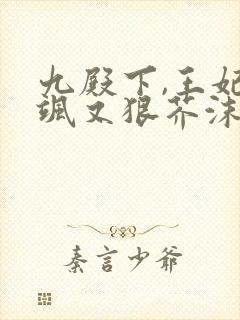 九殿下,王妃
飒又狠芥沫
秦言少爷